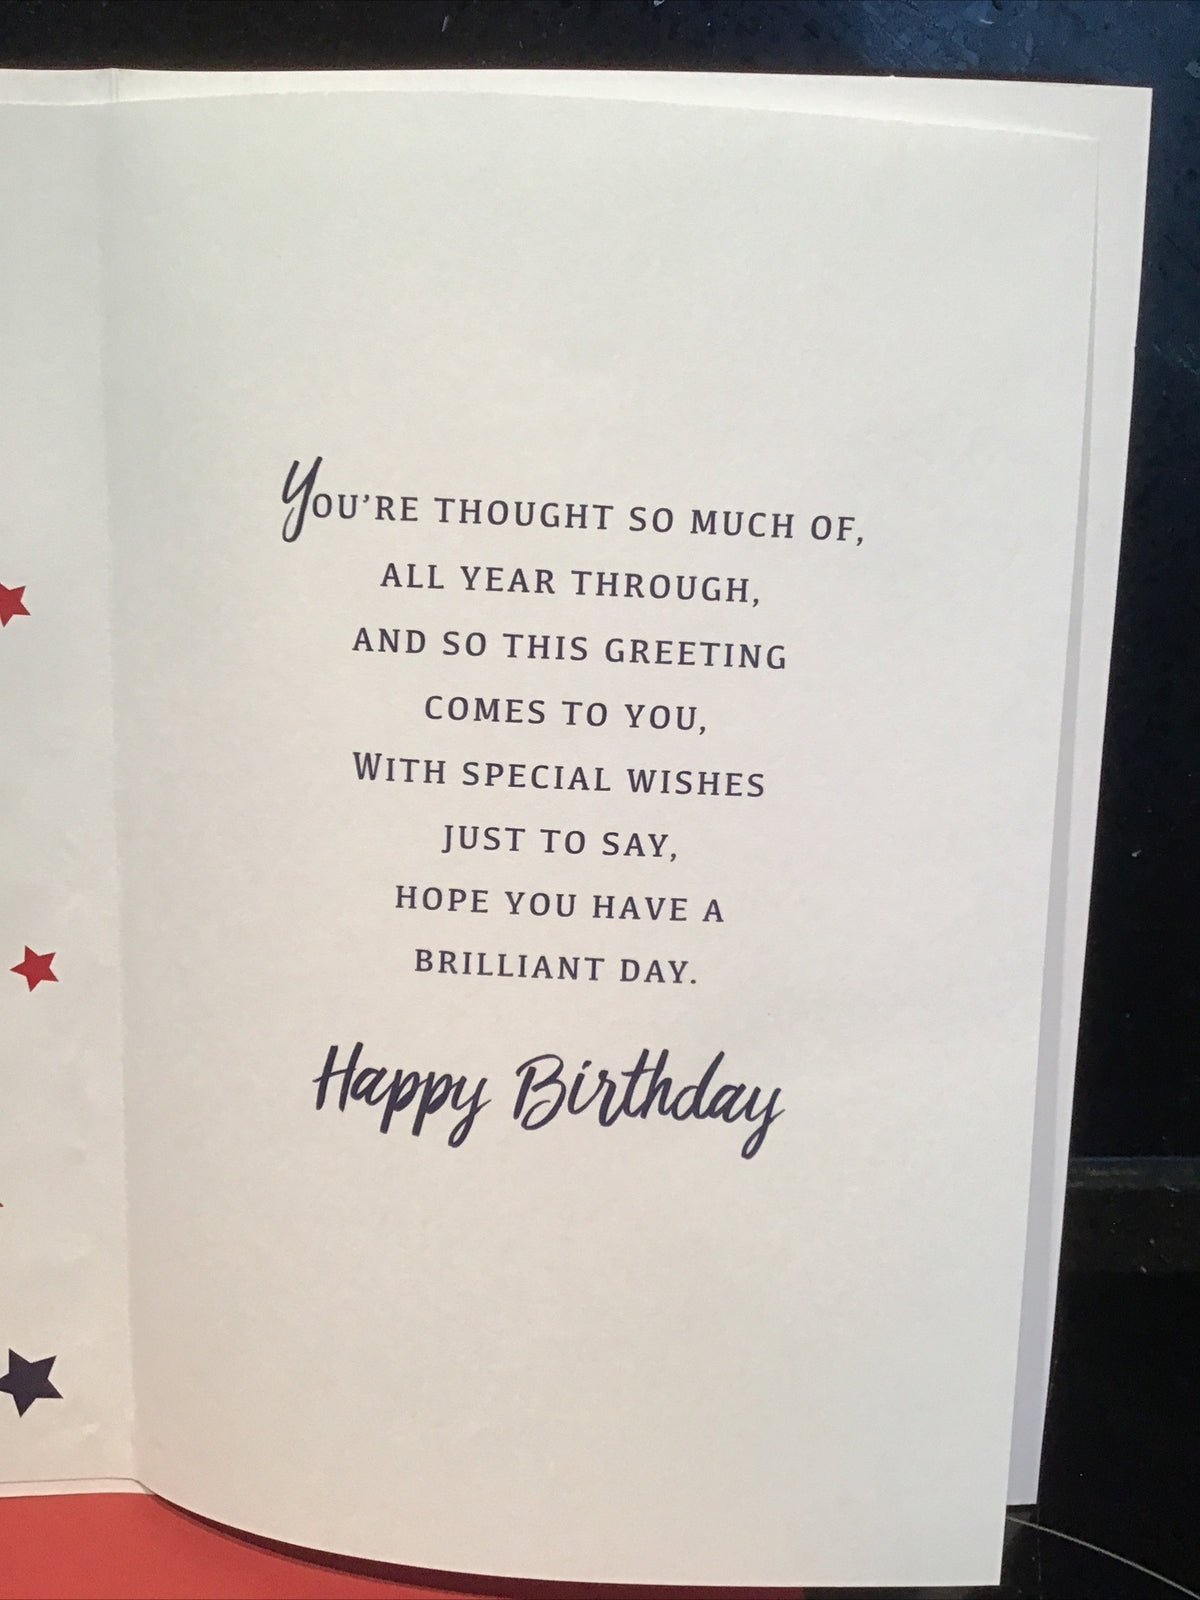 YOU'RE THOUGHT SO MUCH OF,
ALL YEAR THROUGH,
AND SO THIS GREETING
COMES TO YOU,
WITH SPECIAL WISHES
JUST TO SAY,
HOPE YOU HAVE A
BRILLIANT DAY.
Happy Birthday